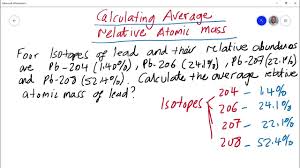 Calculating Average
Relative Atomic Mass
Four Isotopes of lead and their relative abundances
are Pb-204 (1.40%), Pb-206 (24.1%), Pb-207 (22.1%)
and Pb-208 (52.4%). Calculate the average relative
atomic mass of lead?
Isotopes
204 - 1.4%
206 - 24.1%
207 - 22.1%
208 - 52.4%